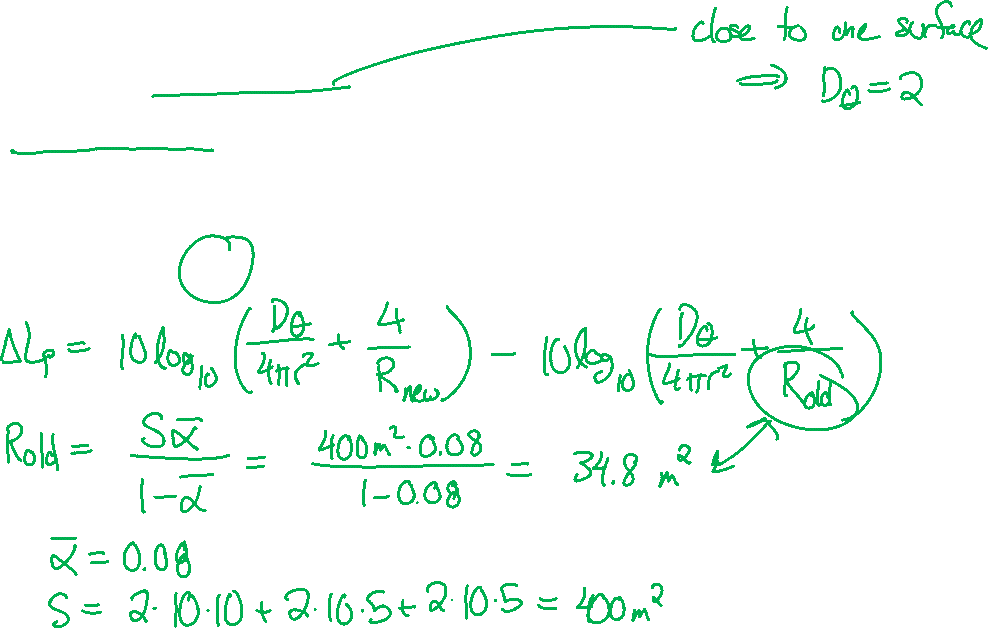 close to one surface
⇒ D_θ = 2
ΔL_p = 10 log_10 (D_θ/(4πr²) + 4/R_new) − 10 log_10 (D_θ/(4πr²) + 4/R_old)
R_old = Sᾱ/(1−ᾱ) = (400 m² · 0.08)/(1−0.08) = 34.8 m²
ᾱ = 0.08
S = 2·10·10 + 2·10·5 + 2·10·5 = 400 m²